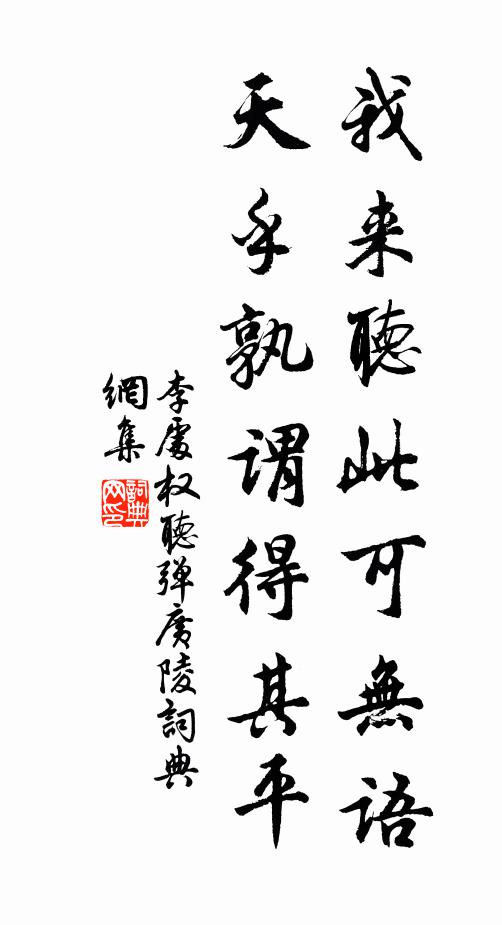 我来聽此可無語
天乎孰謂得其平
李處权聽弹廣陵詞典
網集
詞典網印